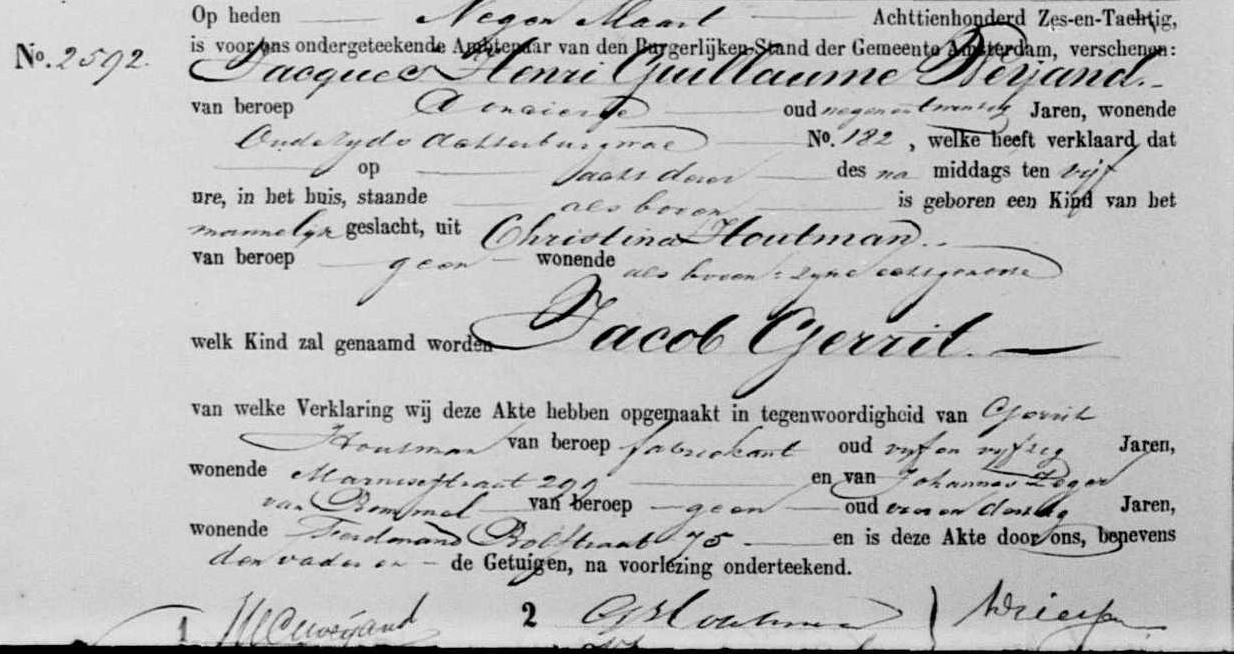 Op heden Negen Maart Achttienhonderd Zes-en-Tachtig,
No. 2592. is voor ons ondergeteekende Ambtenaar van den Burgerlijken-Stand der Gemeente Amsterdam, verschenen:
Jacques Henri Guillaume Weijand.
van beroep Concierge oud negenentwintig Jaren, wonende
Oudezyds Achterburgwal No. 182, welke heeft verklaard dat
op des na middags ten vijf
ure, in het huis, staande als boven is geboren een Kind van het
mannelyk geslacht, uit Christina Houtman.
van beroep geen wonende als boven: zyne echtgenoote
welk Kind zal genaamd worden Jacob Gerrit.
van welke Verklaring wij deze Akte hebben opgemaakt in tegenwoordigheid van Gerrit
Houtman van beroep fabriekant oud vyf en vyftig Jaren,
wonende Marnixstraat 299 en van Johannes Zeger
van Bommel van beroep geen oud een en dertig Jaren,
wonende Ferdinand Bolstraat 75 en is deze Akte door ons, benevens
den vader en de Getuigen, na voorlezing onderteekend.
1 2 G Houtman